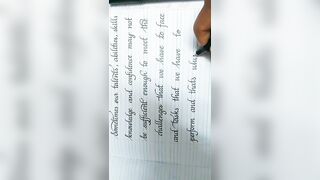 Sometimes our talents, abilities, skills
knowledge and confidence may not
be sufficient enough to meet the
challenges that we have to face
and tasks that we have to
perform and thats why